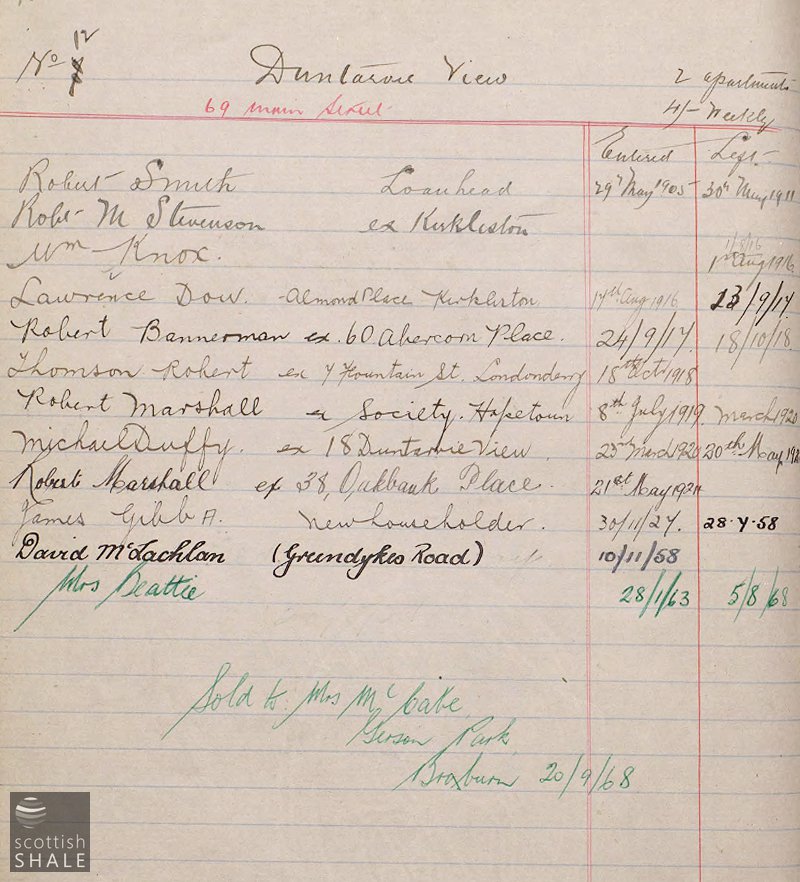 12
No
Duntarvie View
2 apartments
69 Main Street
4/- Weekly
Entered Left
Robert Smith Loanhead 29th May 1905 30th May 1911
Robt M Stevenson ex Kirkliston
1/8/16
Wm Knox. 1st Aug 1916
Lawrence Dow. Almond Place Kirkliston. 14th Aug 1916 13/9/17.
Robert Bannerman ex. 60 Abercorn Place. 24/9/17. 18/10/18.
Thomson Robert ex 7 Fountain St. Londonderry 18th Oct 1918
Robert Marshall ex Society. Hopetoun 8th July 1919. March 1920
Michael Duffy. ex 18 Duntarvie View. 23rd March 1920 20th May
Robert Marshall ex 38, Oakbank Place. 21st May 1924
James Gibb A. new householder. 30/11/27. 28.4.58
David McLachlan (Greendykes Road) 10/11/58
Mrs Beattie 28/1/63 5/8/68
Sold to Mrs McCabe
Park
Broxburn 20/9/68
scottish
SHALE